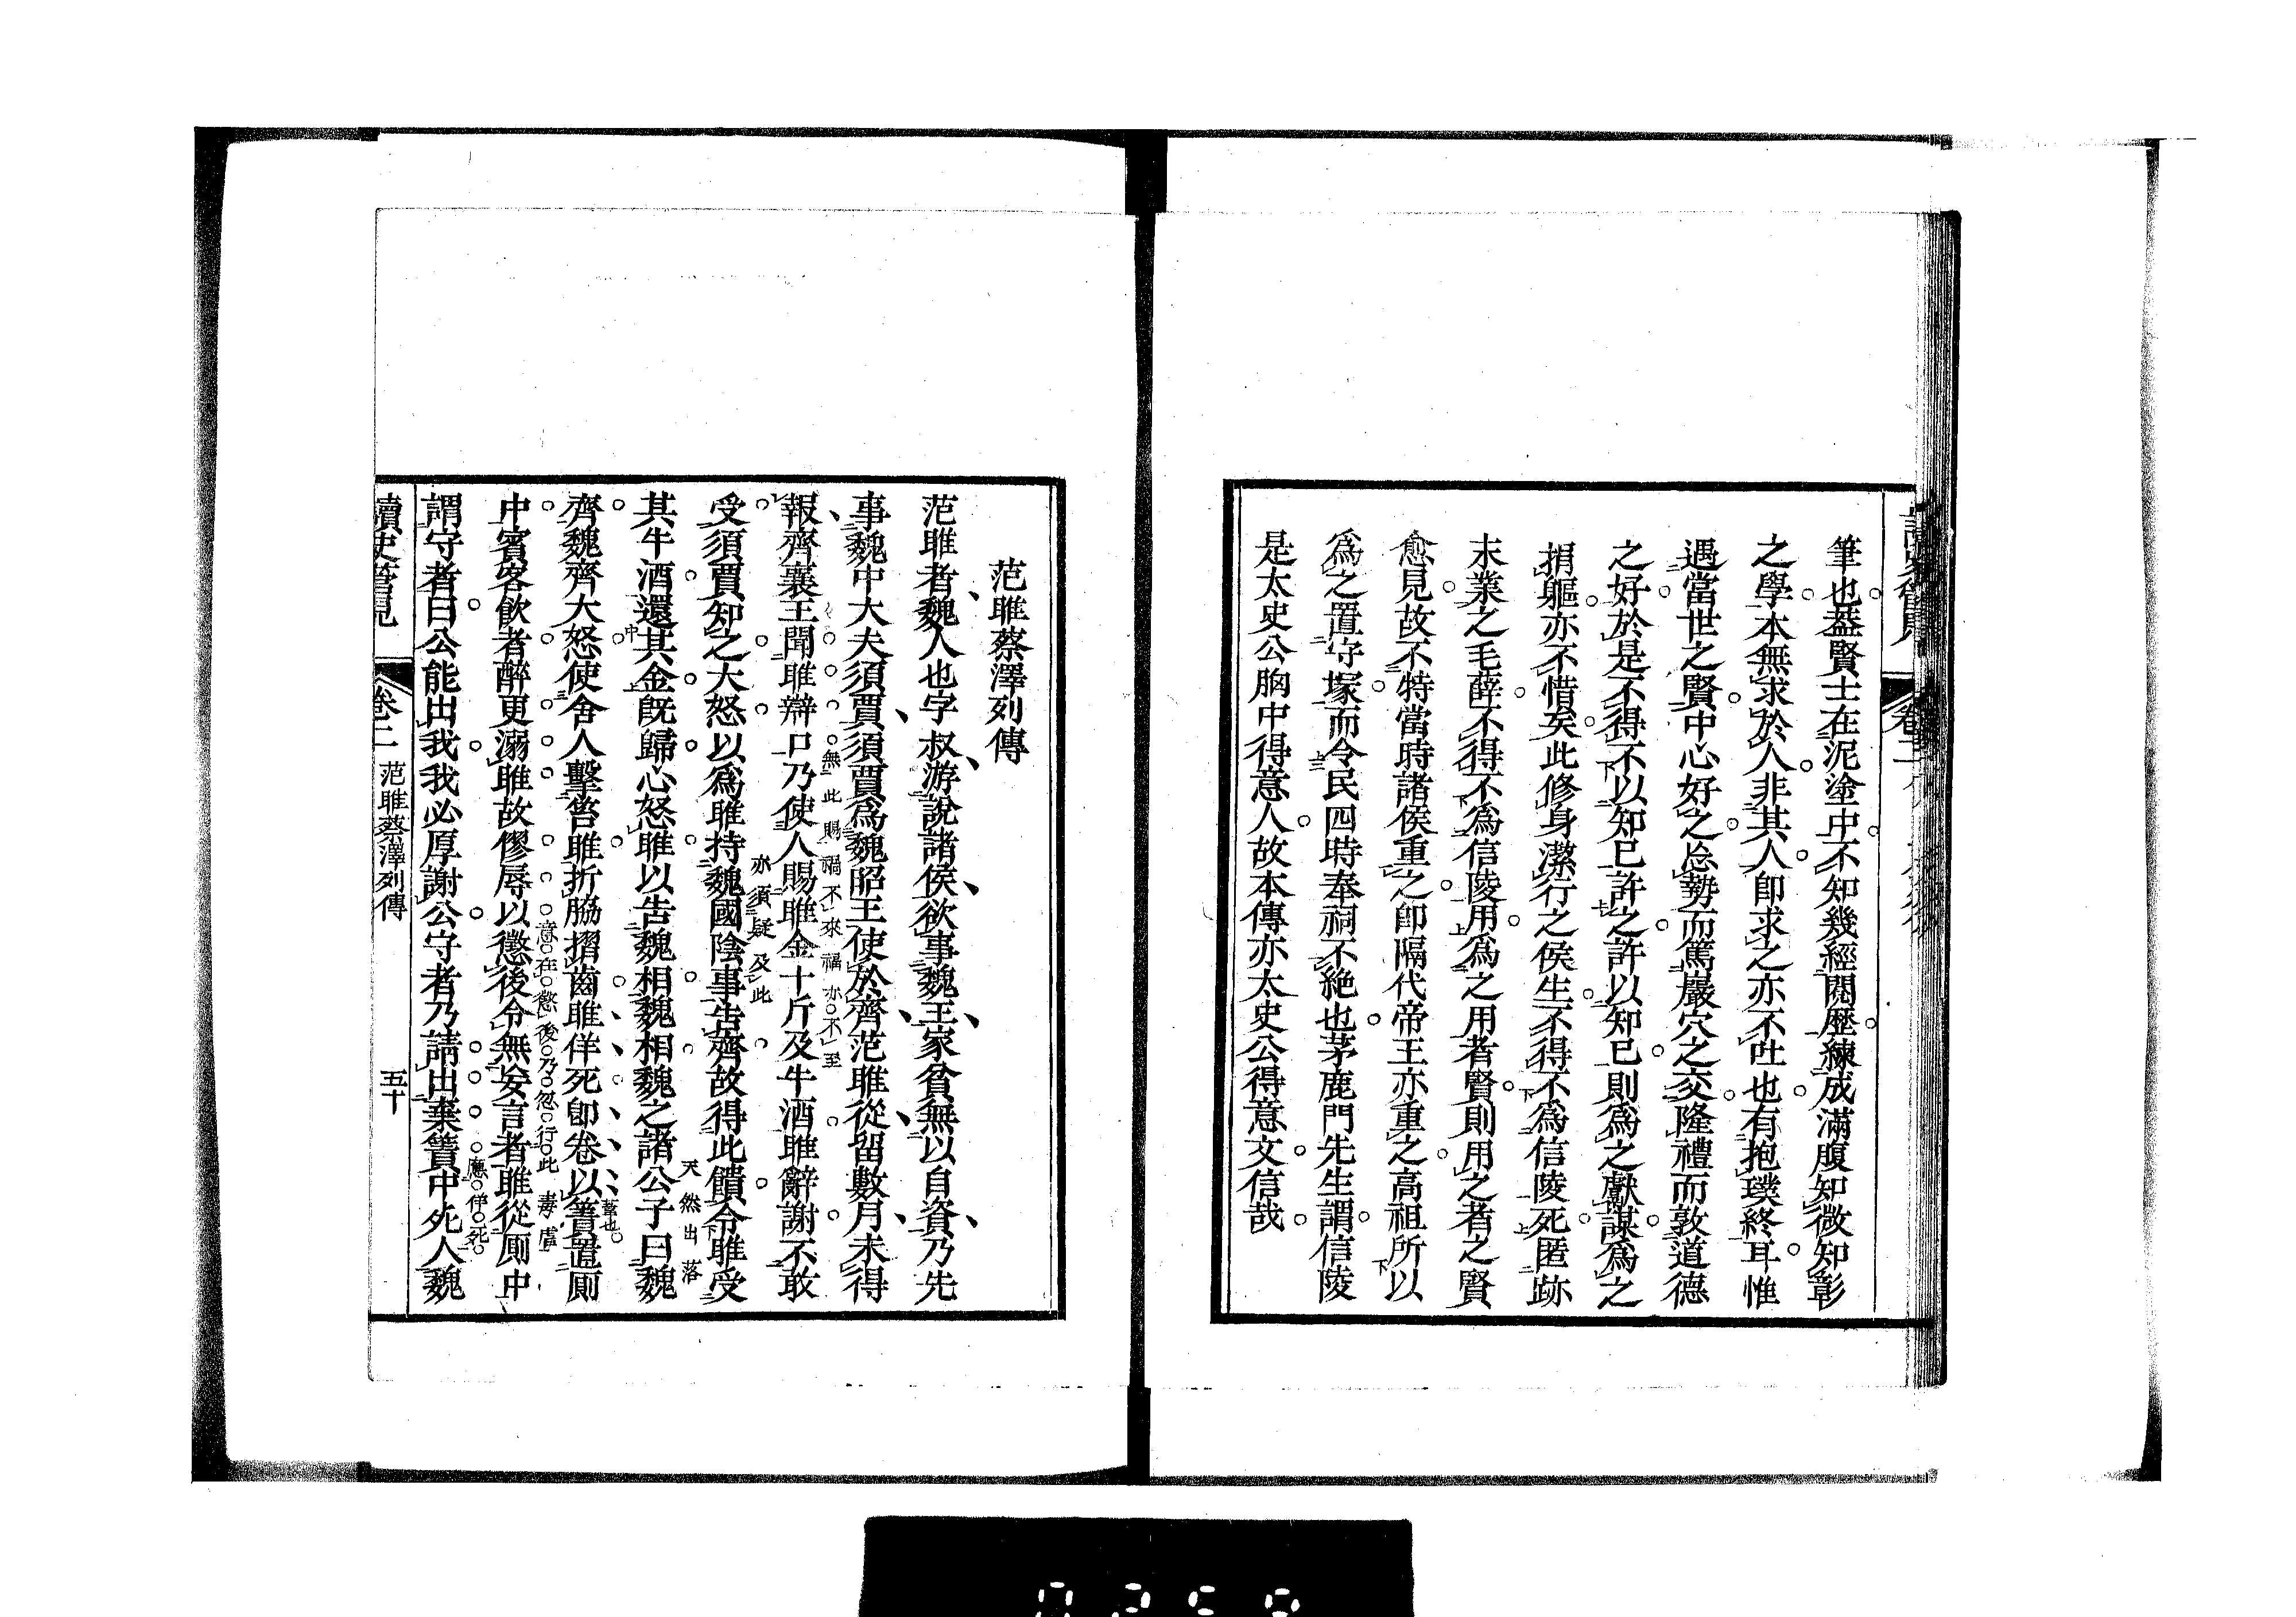 筆也葢賢士在泥塗中不知幾經閱歷練成滿腹知微知彰
之學本無求於人非其人卽求之亦不吐也有抱璞終耳惟
遇當世之賢中心好之忘勢而篤嚴穴之交隆禮而敦道德
之好於是不得不以知已許之許以知已則爲之獻謀爲之
捐軀亦不惜矣此修身潔行之侯生不得不爲信陵死匿跡
末業之毛薛不得不爲信陵用爲之用者賢則用之者之賢
愈見故不特當時諸侯重之卽隔代帝王亦重之高祖所以
爲之置守塚而令民四時奉祠不絶也茅鹿門先生謂信陵
是太史公胸中得意人故本傳亦太史公得意文信哉
卷二
范雎蔡澤列傳
范雎者魏人也字叔游說諸侯欲事魏王家貧無以自資乃先
事魏中大夫須賈須賈爲魏昭王使於齊范雎從留數月未得
報齊襄王聞雎辯口乃使人賜雎金十斤及牛酒雎辭謝不敢
無此賜禍不來福亦不至
受須賈知之大怒以爲雎持魏國陰事告齊故得此饋令雎受
亦須疑及此
其牛酒還其金旣歸心怒雎以告魏相魏相魏之諸公子曰魏
天然出落
齊魏齊大怒使舍人擊笞雎折脇摺齒雎佯死卽卷以簀置厠
葦也
中賓客飲者醉更溺雎故僇辱以懲後令無妄言者雎從厠中
意在懲後乃忽行此毒虐
謂守者曰公能出我我必厚謝公守者乃請出棄簀中死人魏
應佯死
讀史管見
卷二
范雎蔡澤列傳
五十